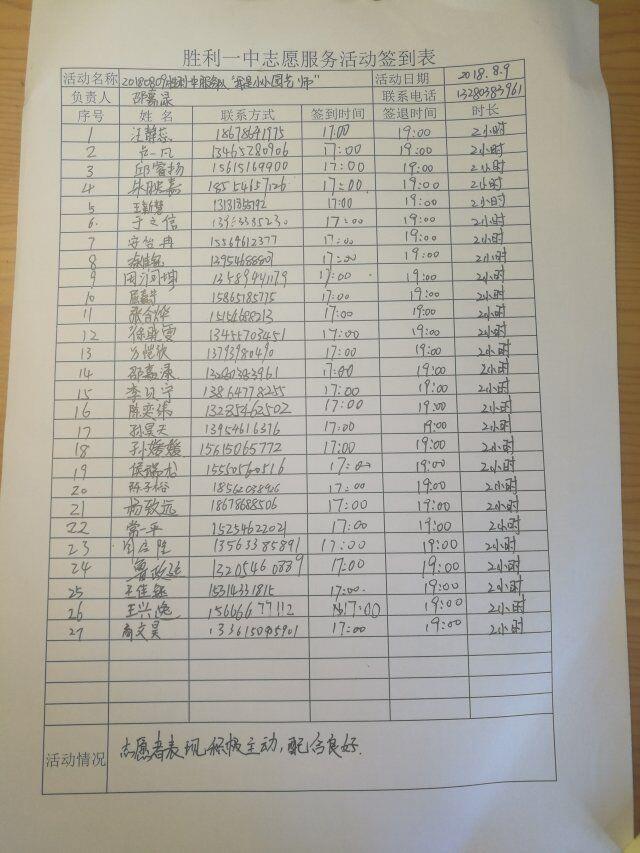 胜利一中志愿服务活动签到表
活动名称 20180809胜利一中服务队“我是小小园艺师” 活动日期 2018.8.9
负责人 邵嘉漾 联系电话 13280383961
序号 姓名 联系方式 签到时间 签退时间 时长
1 汪静蕊 18678691975 17:00 19:00 2小时
2 芦一凡 13465280906 17:00 19:00 2小时
3 邱睿扬 15615169900 17:00 19:00 2小时
4 18554157126 17:00 19:00 2小时
5 王新慧 17:00 19:00 2小时
6 于之信 17:00 19:00 2小时
7 安台冉 15564612377 17:00 19:00 2小时
8 17:00 19:00 2小时
9 13589941179 17:00 19:00 2小时
10 15865185775 17:00 19:00 2小时
11 张合华 15154688213 17:00 19:00 2小时
12 徐晓雯 13455703451 17:00 19:00 2小时
13 方恺欣 13793780490 17:00 19:00 2小时
14 邵嘉漾 13280383961 17:00 19:00 2小时
15 李贝宁 13864778255 17:00 19:00 2小时
16 陈奕伟 13285462502 17:00 19:00 2小时
17 孙昊天 13954616376 17:00 19:00 2小时
18 孙嫒嫒 15615065772 17:00 19:00 2小时
19 侯瑞龙 15550560516 17:00 19:00 2小时
20 陈子裕 17:00 19:00 2小时
21 杨致远 18678688506 17:00 19:00 2小时
22 常一平 15254622021 17:00 19:00 2小时
23 13563385891 17:00 19:00 2小时
24 13205460889 17:00 19:00 2小时
25 王佳钰 15314331815 17:00 19:00 2小时
26 王兴逸 15666677112 17:00 19:00 2小时
27 商文昊 17:00 19:00 2小时
活动情况 志愿者表现积极主动，配合良好.